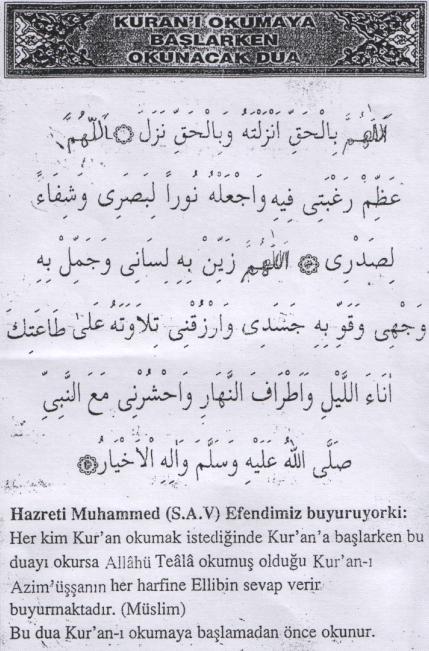 KURAN'I OKUMAYA
BAŞLARKEN
OKUNACAK DUA
اَللّٰهُمَّ بِالْحَقِّ اَنْزَلْتَهُ وَبِالْحَقِّ نَزَلَ اَللّٰهُمَّ
عَظِّمْ رَغْبَتِى فِيهِ وَاجْعَلْهُ نُوراً لِبَصَرِى وَشِفَاءً
لِصَدْرِى اَللّٰهُمَّ زَيِّنْ بِهِ لِسَانِى وَجَمِّلْ بِهِ
وَجْهِى وَقَوِّ بِهِ جَسَدِى وَارْزُقْنِى تِلَاوَتَهُ عَلٰى طَاعَتِكَ
اٰنَاءَ اللَّيْلِ وَاَطْرَافَ النَّهَارِ وَاحْشُرْنِى مَعَ النَّبِىِّ
صَلَّى اللهُ عَلَيْهِ وَسَلَّمَ وَاٰلِهِ الْاَخْيَارُ
Hazreti Muhammed (S.A.V) Efendimiz buyuruyorki:
Her kim Kur'an okumak istediğinde Kur'an'a başlarken bu
duayı okursa Allâhü Teâlâ okumuş olduğu Kur'an-ı
Azim'üşşanın her harfine Ellibin sevap verir
buyurmaktadır. (Müslim)
Bu dua Kur'an-ı okumaya başlamadan önce okunur.